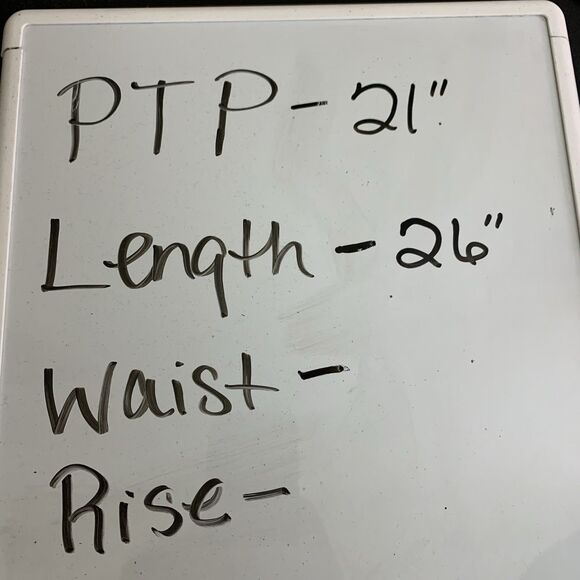 PTP - 21"
Length - 26"
Waist -
Rise -